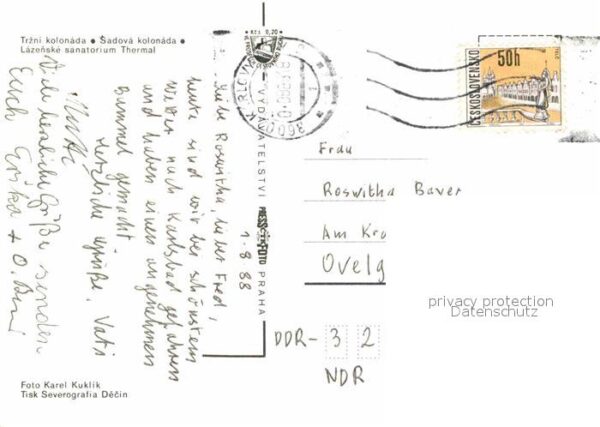 Tržní kolonáda ● Šadová kolonáda ●
Lázeňské sanatorium Thermal
Kčs 0,20
VYDAVATELSTVÍ PRESSFOTO PRAHA
1.8.88
Liebe Roswitha, lieber Fred,
heute sind wir bei schönstem
Wetter nach Karlsbad gefahren
und haben einen angenehmen
Bummel gemacht.
Herzliche Grüße, Vati
Mutti
Viele herzliche Grüße senden
Euch Erika + O.
Foto Karel Kuklík
Tisk Severografia Děčín
360 00 KARLOVY
ČESKOSLOVENSKO
50h
Frau
Roswitha Bauer
Am Kro
Ovelg
DDR- 3 2
NDR
privacy protection
Datenschutz